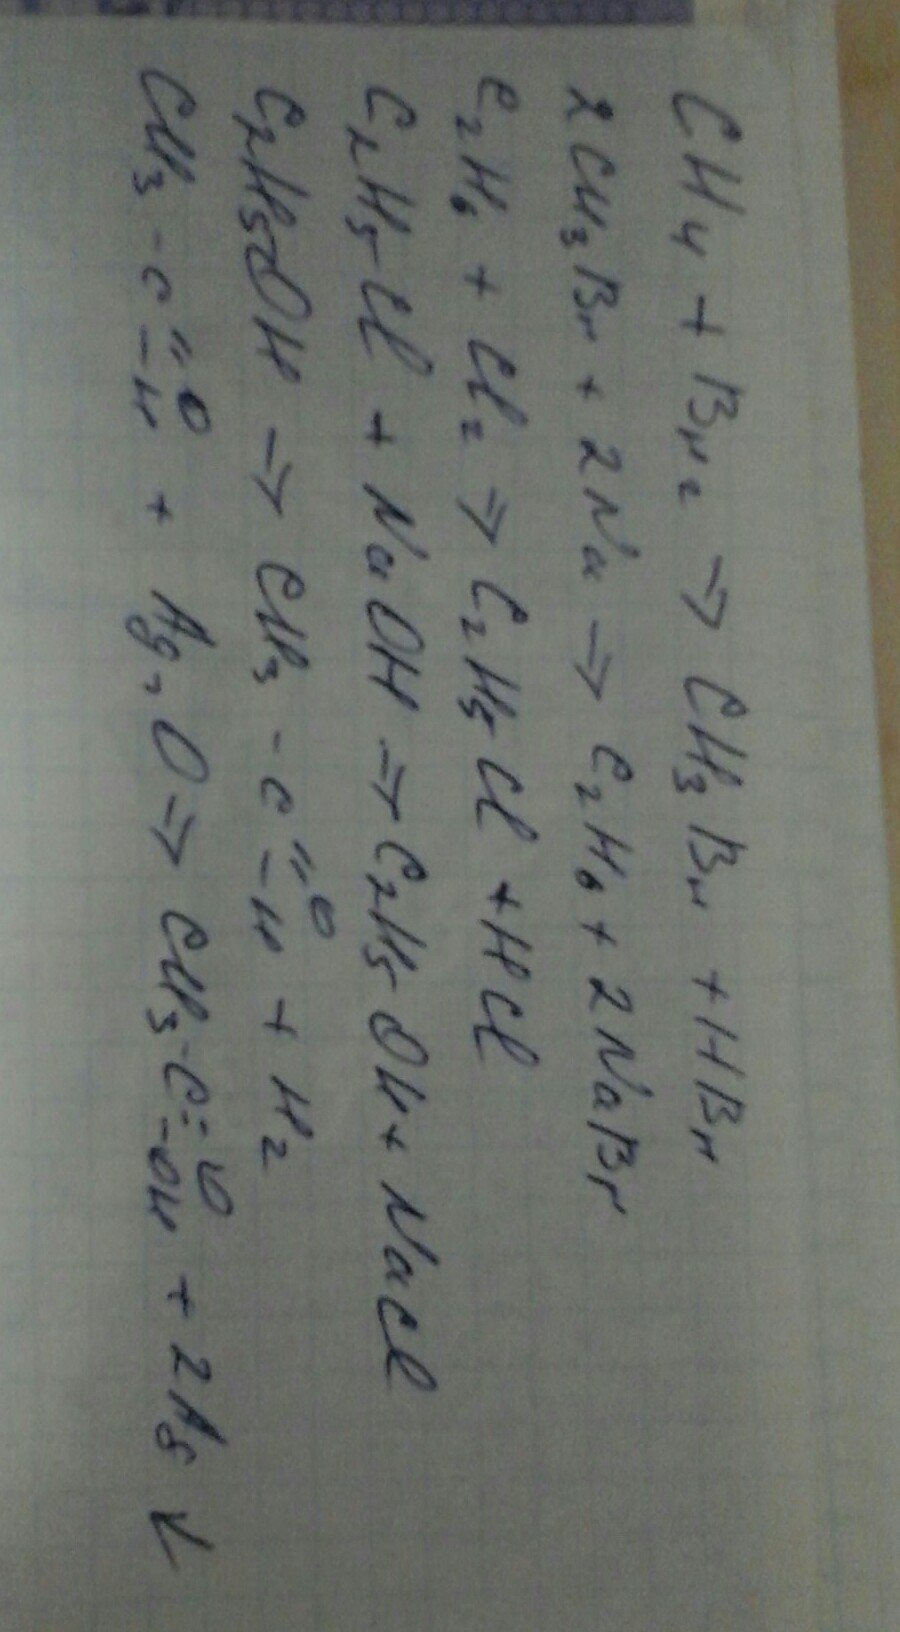 CH₄ + Br₂ → CH₃Br + HBr
2CH₃Br + 2Na → C₂H₆ + 2NaBr
C₂H₆ + Cl₂ → C₂H₅Cl + HCl
C₂H₅-Cl + NaOH → C₂H₅-OH + NaCl
C₂H₅OH → CH₃-C(=O)-H + H₂
CH₃-C(=O)-H + Ag₂O → CH₃-C(=O)-OH + 2Ag↓